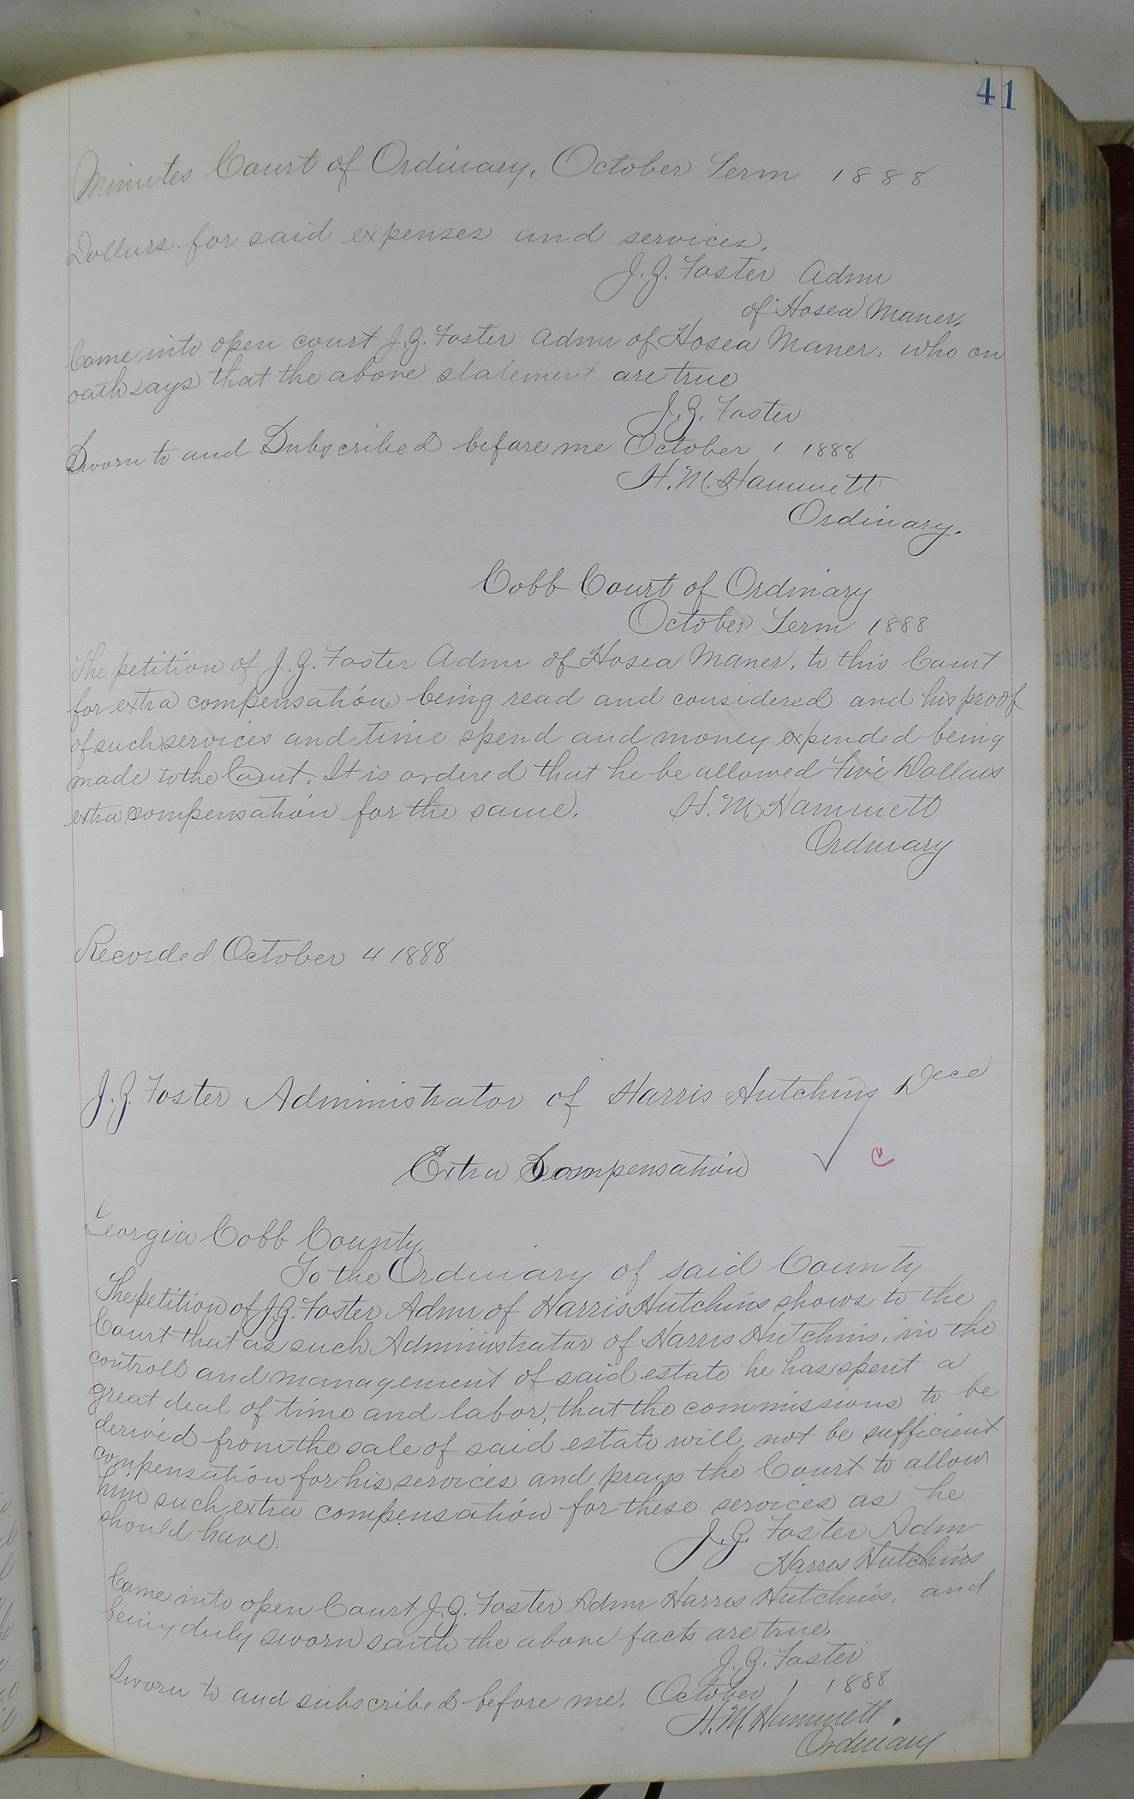 41
Minutes Court of Ordinary, October Term 1888
Dollars for said expenses and services.
J. Z. Foster Admr
of Hosea Maner.
Came into open court J. Z. Foster Admr of Hosea Maner. who on
oath says that the above statement are true
J. Z. Foster
Sworn to and Subscribed before me October 1 1888
H. M. Hammett
Ordinary.
Cobb Court of Ordinary
October Term 1888
The petition of J. Z. Foster Admr of Hosea Maner, to this Court
for extra compensation being read and considered and his proof
of such services and time spend and money expended being
made to the Court. It is ordered that he be allowed Five Dollars
extra compensation for the same. H. M. Hammett
Ordinary
Recorded October 4 1888
J. Z. Foster Administrator of Harris Hutchins Decd
Extra Compensation
Georgia Cobb County.
To the Ordinary of said County
The petition of J. Z. Foster Admr of Harris Hutchins shows to the
Court that as such Administrator of Harris Hutchins, in the
controll and management of said estate he has spent a
great deal of time and labor, that the commissions to be
derived from the sale of said estate will not be sufficient
compensation for his services and prays the Court to allow
him such extra compensation for these services as he
should have.
J. Z. Foster Adm
Harris Hutchins
Came into open Court J. Z. Foster Admr Harris Hutchins, and
being duly sworn saith the above facts are true.
J. Z. Foster
Sworn to and subscribed before me. October 1 1888
H. M. Hammett.
Ordinary